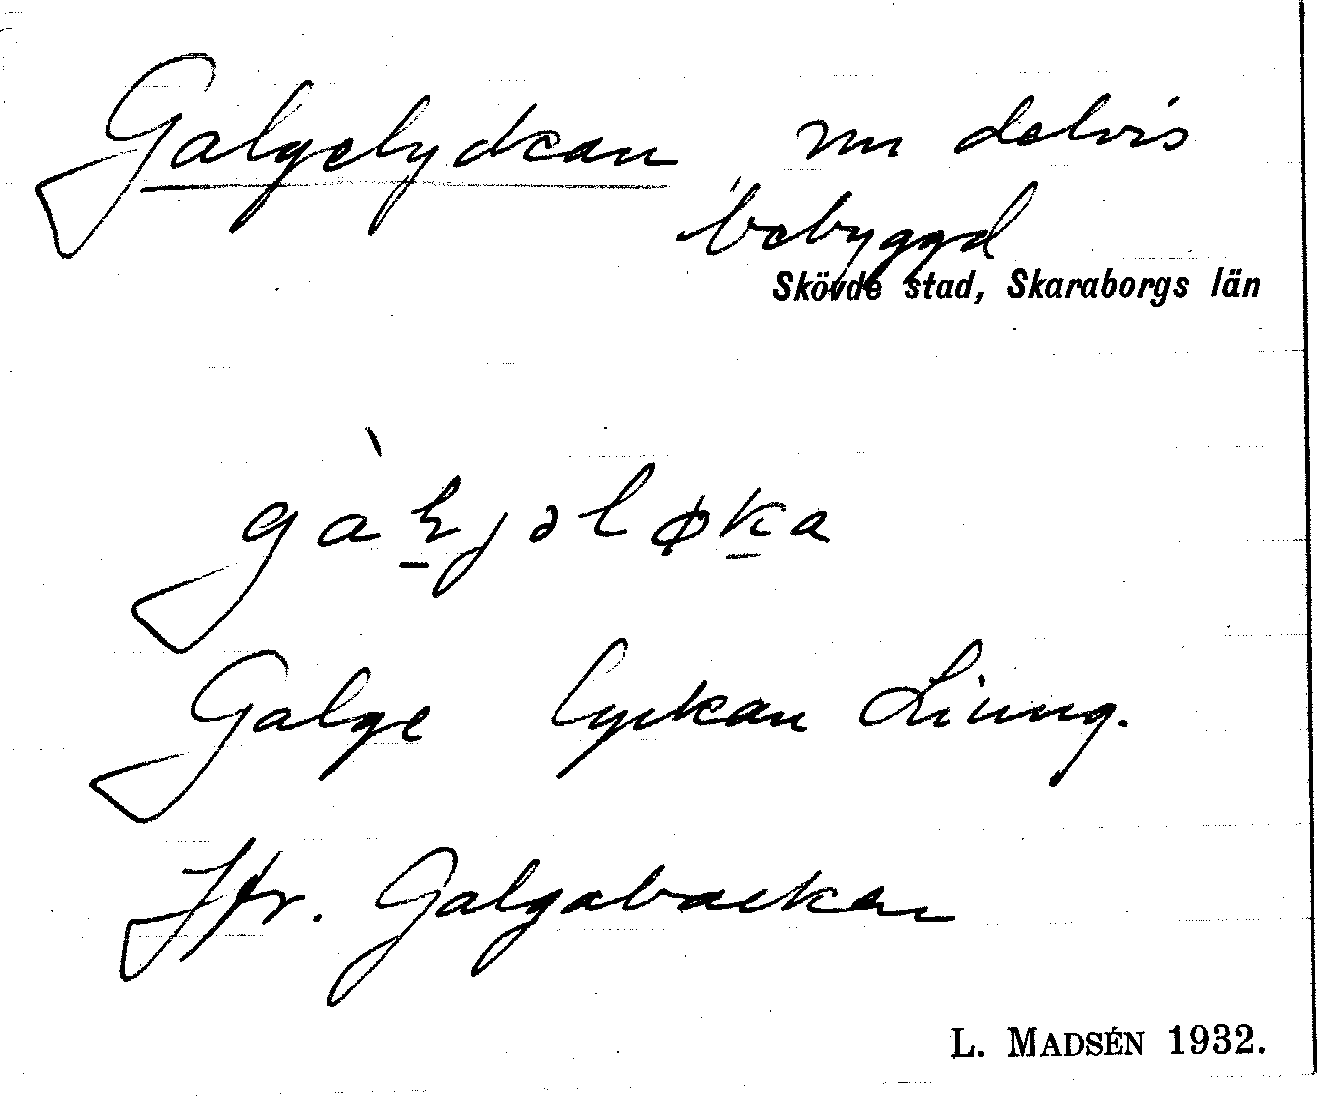 Galgelyckan nu delvis
bebyggd
Skövde stad, Skaraborgs län
Galge lyckan Liung.
Jfr. Galgabacken
L. MADSÉN 1932.